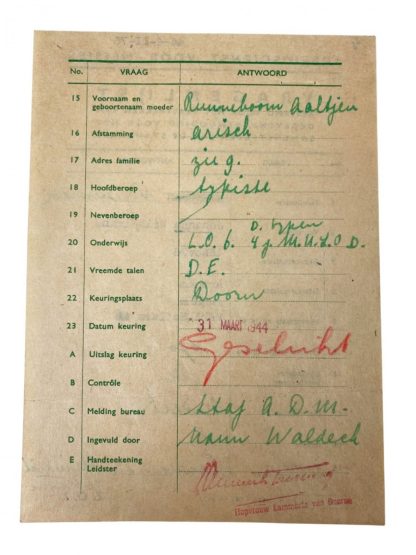 No. VRAAG ANTWOORD
15 Voornaam en geboortenaam moeder Runneboom Aaltjen
16 Afstamming arisch
17 Adres familie zie 9.
18 Hoofdberoep typiste
19 Nevenberoep
D. typen
20 Onderwijs L.O. 6. 4 j. M.U.L.O D.
21 Vreemde talen D.E.
22 Keuringsplaats Doorn
23 Datum keuring 31 MAART 1944
A Uitslag keuring Geschikt
B Contrôle
C Melding bureau Staf A.D.M.
D Ingevuld door Mann Waldeck
E Handteekening Leidster
Hopvrouw Lammerts van Bueren